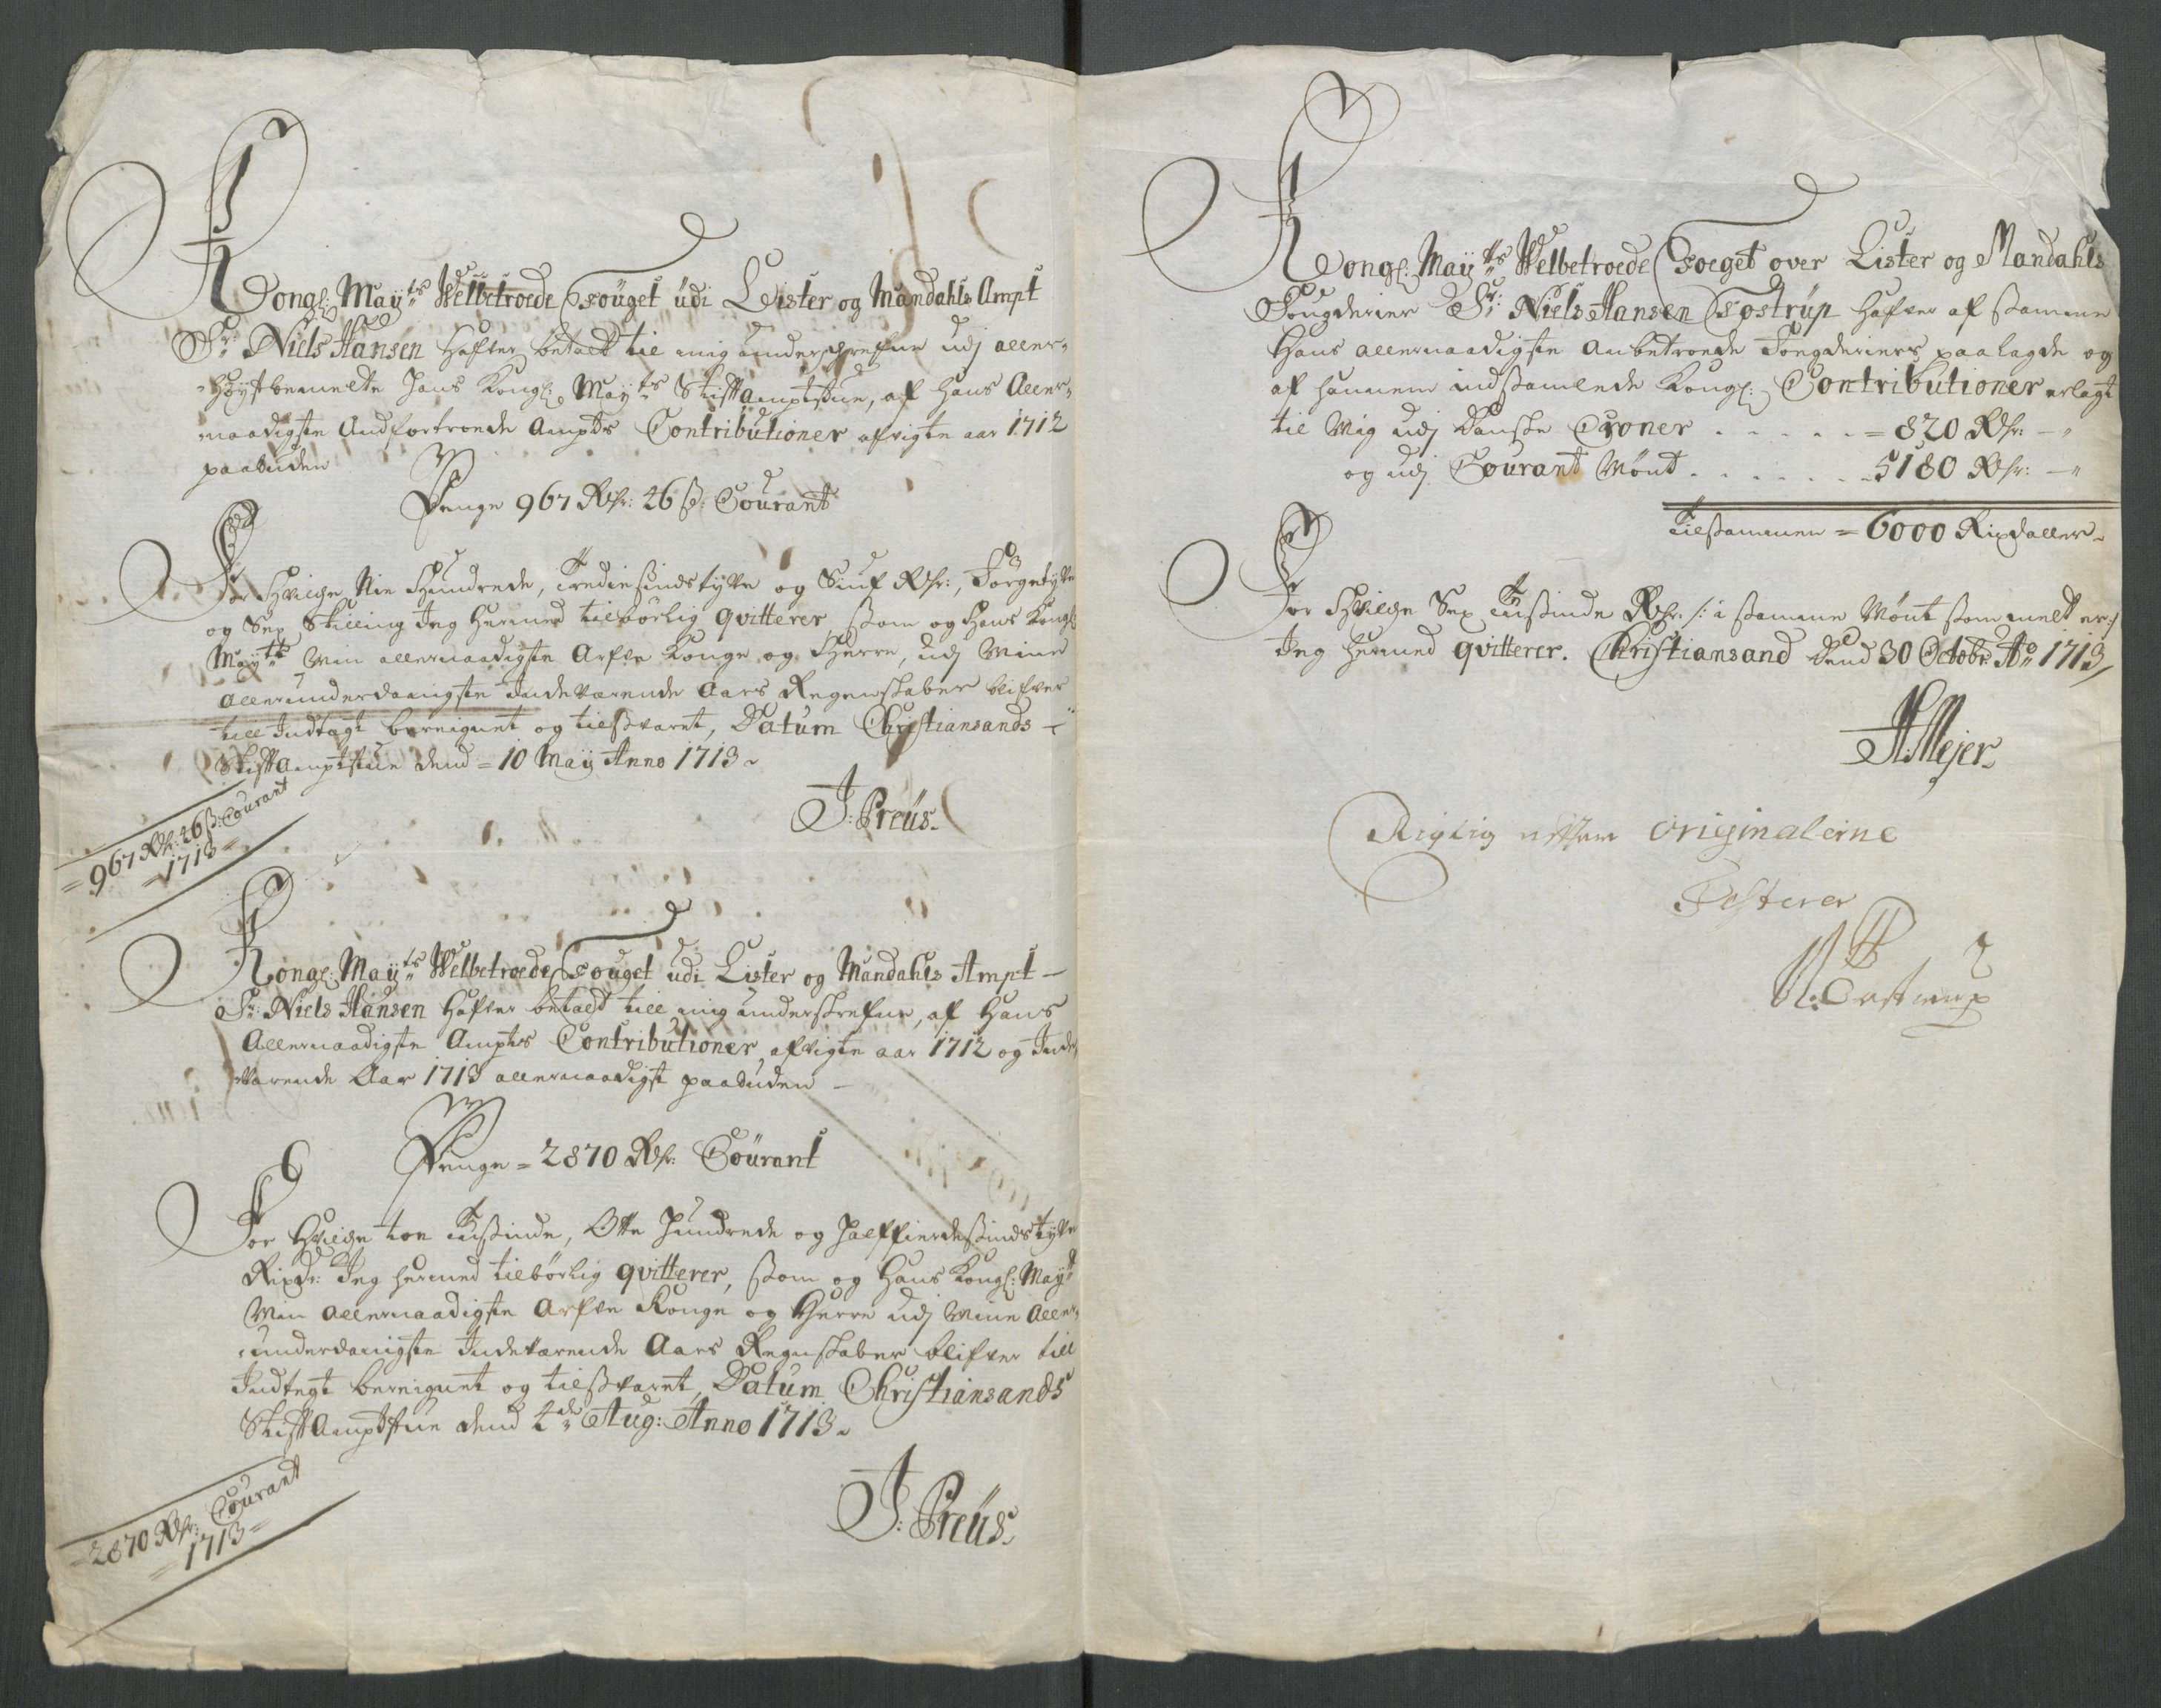 Kongl: Maÿts Welbetroede Fouget udi Lister og Mandahls Ampt
Sr: Niels Hansen Hafver betalt til mig underschrefne udj aller-
-høystbemelte Hans Kongl: Mayts StiftAmptstue, af Hans Aller-
naadigste Andfortroede Ampts Contributioner afvigte aar 1712
paabuden
Penge 967 Rdr: 46 ß: Courant
For Hvilche Nie Hundrede, Trediesindstyfve og Siuf Rdr:, Förgetyfve
og Sex Skilling Jeg hermed tilbörlig qvitterer, som og Hans Kongl:
Maÿtt Min allernaadigste Arfve Konge og Herre, udj Mine
allerunderdanigste Indeværende Aars Regenskaber blifver
till Indtægt bereignet og tilsvaret, Datum Christiansands
StiftAmptstue dend = 10 Maÿ Anno 1713
J: Preüs.
= 967 Rdr: 46 ß: Courant
= 1713 =
Kongl: Maÿts Welbetroede Fouget udi Lister og Mandahls Ampt
Sr: Niels Hansen Hafver betalt till mig underskrefne, af Hans
Allernaadigste Ampts Contributioner, afvigte aar 1712 og Inde-
værende Aar 1713 allernaadigst paabuden
Penge = 2870 Rdr: Courant
For Hvilche toe Tusinde, Otte Hundrede og Halffierdesindstyfve
Rixdr: Jeg hermed tilbörlig qvitterer, som og Hans Kongl: Maytt
Min allernaadigste Arfve Konge og Herre udj Mine Aller-
underdanigste Indeværende Aars Regnskaber blifver till
Indtegt bereignet og tilsvaret, Datum Christiansands
StiftAmptstue dend 4de Aug: Anno 1713
J: Preüs.
= 2870 Rdr: Courant
= 1713 =
Kongl: Maÿtts Welbetroede Foeget over Lister og Mandahls
Fougderier Sr: Niels Hansen Tostrup Hafver af samme
Hans allernaadigste anbetroede Foegderiers paalagde og
af hannem indsamlede Kongl: Contributioner erlagt
til Mig udj Danske Croner . . . . . = 820 Rdr: —"
og udj Courant Mönt . . . . . . 5180 Rdr: —"
Tilsammen = 6000 Rixdaller
For Hvilche Sex Tusinde Rdr: /: i samme Mönt som melt er :/
Jeg hermed qvitterer. Christiansand dend 30 Octobr: Ao 1713
H: Mejer
Rigtig efter Originalerne
Testerer
N: H: Tostrup